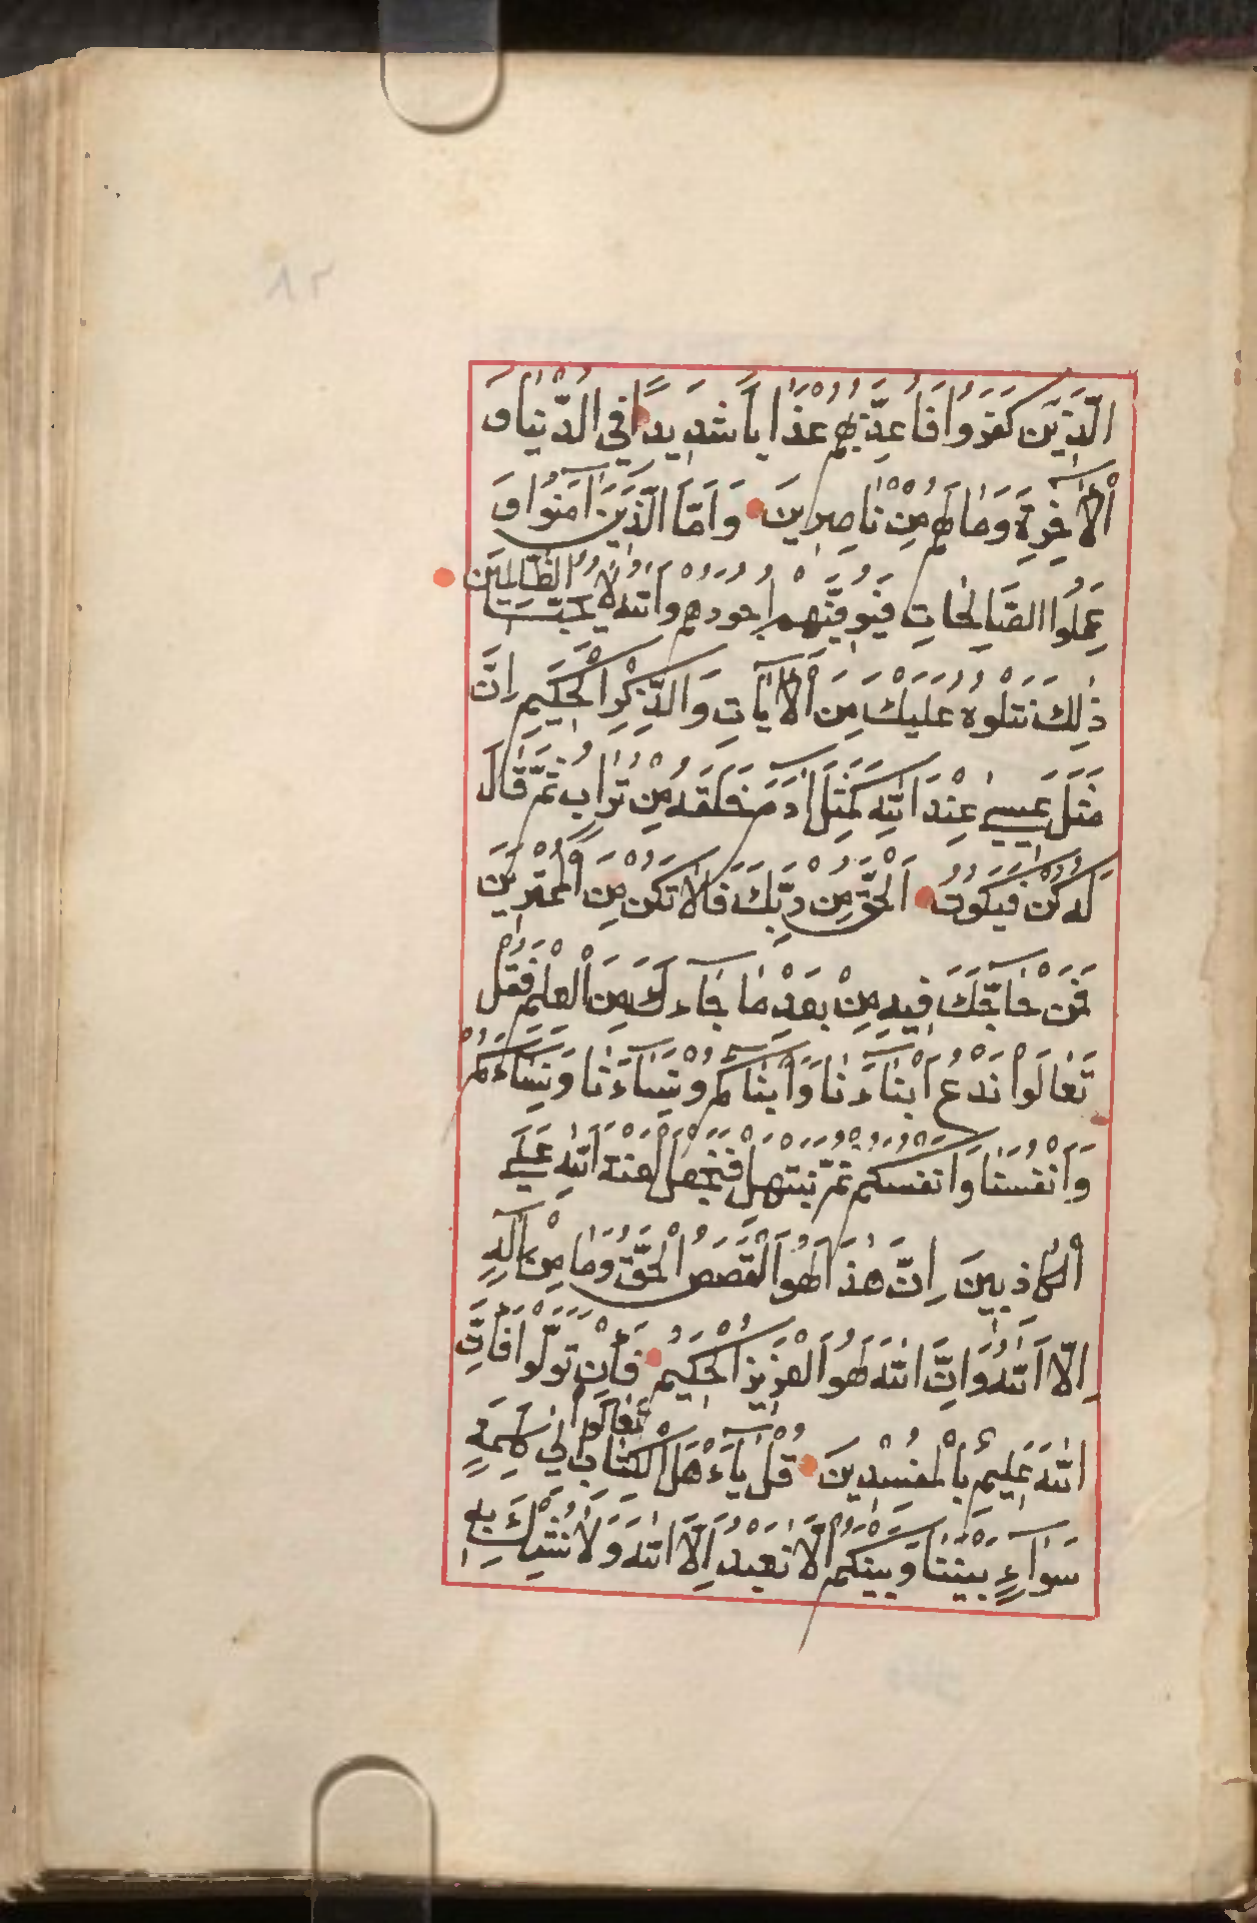 ٨٢
الَّذِينَ كَفَرُوا فَاُعَذِّبُهُمْ عَذَابًا شَدِيدًا فِي الدُّنْيَا وَ
الْآخِرَةِ وَمَا لَهُمْ مِنْ نَاصِرِينَ وَاَمَّا الَّذِينَ آمَنُوا وَ
عَمِلُوا الصَّالِحَاتِ فَيُوَفِّيهِمْ اُجُورَهُمْ وَاللّٰهُ لَا يُحِبُّ الظَّالِمِينَ
ذٰلِكَ نَتْلُوهُ عَلَيْكَ مِنَ الْآيَاتِ وَالذِّكْرِ الْحَكِيمِ اِنَّ
مَثَلَ عِيسٰى عِنْدَ اللّٰهِ كَمَثَلِ آدَمَ خَلَقَهُ مِنْ تُرَابٍ ثُمَّ قَالَ
لَهُ كُنْ فَيَكُونُ اَلْحَقُّ مِنْ رَبِّكَ فَلَا تَكُنْ مِنَ الْمُمْتَرِينَ
فَمَنْ حَاجَّكَ فِيهِ مِنْ بَعْدِ مَا جَاءَكَ مِنَ الْعِلْمِ فَقُلْ
تَعَالَوْا نَدْعُ اَبْنَاءَنَا وَاَبْنَاكُمْ وَنِسَاءَنَا وَنِسَاءَكُمْ
وَاَنْفُسَنَا وَاَنْفُسَكُمْ ثُمَّ نَبْتَهِلْ فَنَجْعَلْ لَعْنَةَ اللّٰهِ عَلَى
الْكَاذِبِينَ اِنَّ هٰذَا لَهُوَ الْقَصَصُ الْحَقُّ وَمَا مِنْ اِلٰهٍ
اِلَّا اللّٰهُ وَاِنَّ اللّٰهَ لَهُوَ الْعَزِيزُ الْحَكِيمُ فَاِنْ تَوَلَّوْا فَاِنَّ
اللّٰهَ عَلِيمٌ بِالْمُفْسِدِينَ قُلْ يَاءَهْلَ الْكِتَابِ تَعَالَوْا اِلٰى كَلِمَةٍ
سَوَاءٍ بَيْنَنَا وَبَيْنَكُمْ اَلَّا نَعْبُدَ اِلَّا اللّٰهَ وَلَا نُشْرِكَ بِهِ